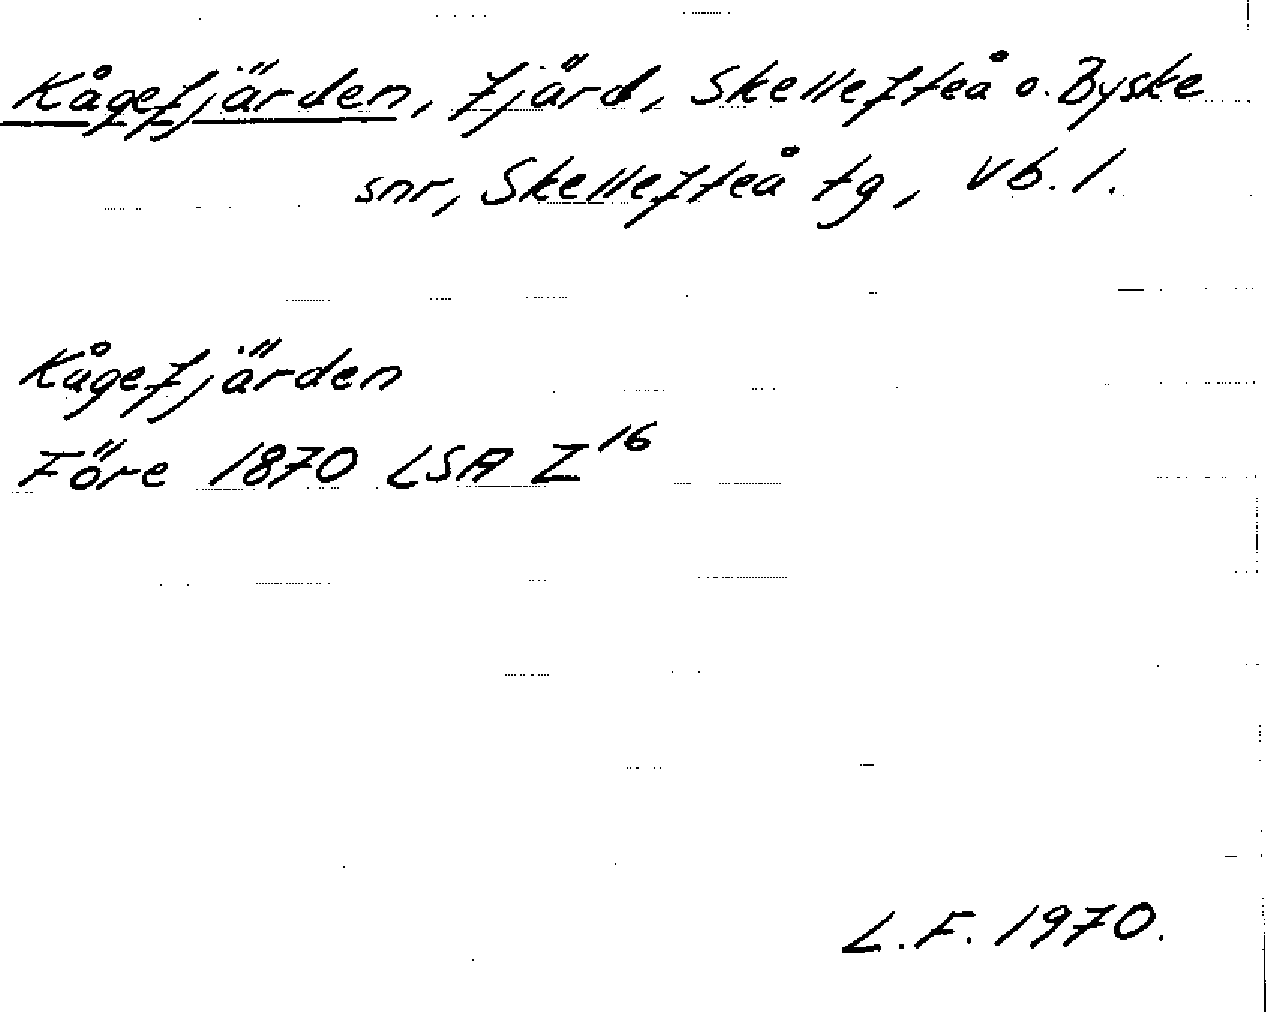 Kågefjärden, fjärd, Skellefteå o. Byske
snr, Skellefteå tg, Vb. l.
Kågefjärden
Före 1870 LSA Z16
L.F. 1970.